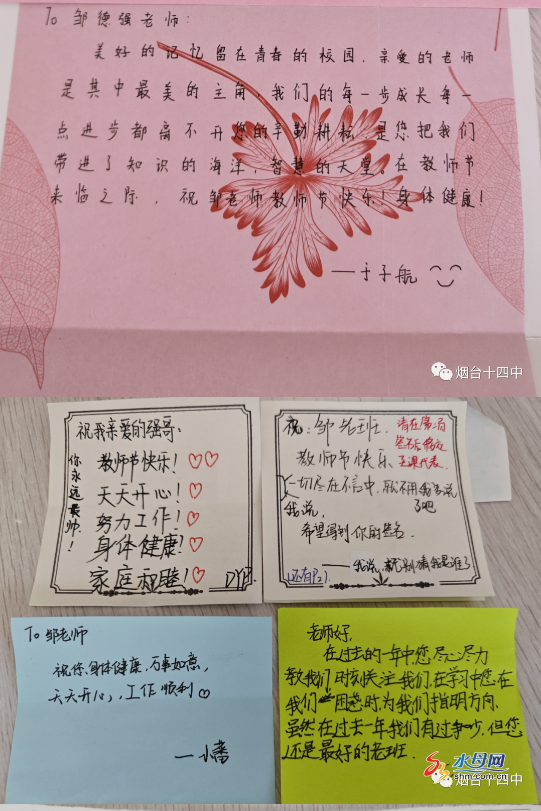 To 邹德强老师:
美好的记忆留在青春的校园,亲爱的老师
是其中最美的主角,我们的每一步成长每一
点进步都离不开您的辛勤耕耘,是您把我们
带进了知识的海洋,智慧的天堂。在教师节
来临之际,祝邹老师教师节快乐!身体健康!
——于子航
烟台十四中
祝我亲爱的强哥:
你永远最帅!
教师节快乐!♡♡
天天开心!♡
努力工作!♡
身体健康!♡
家庭和睦!♡
DYF.
祝:邹老班
教师节快乐
一切尽在不言中,
我说,
了吧
希望得到你的签名
——我说就别猜我是谁了
还有P2
请在第二页
签名后转交
王课代表.
To 邹老师
祝你身体健康,万事如意,
天天开心,工作顺利♡
—小潘
老师好,
在过去的一年中您尽心尽力
教我们,时刻关注我们,在学习中您在
我们困惑时,为我们指明方向,
虽然在过去一年我们有过争吵,但您
还是最好的老班.
水母网
shm.com.cn
烟台十四中